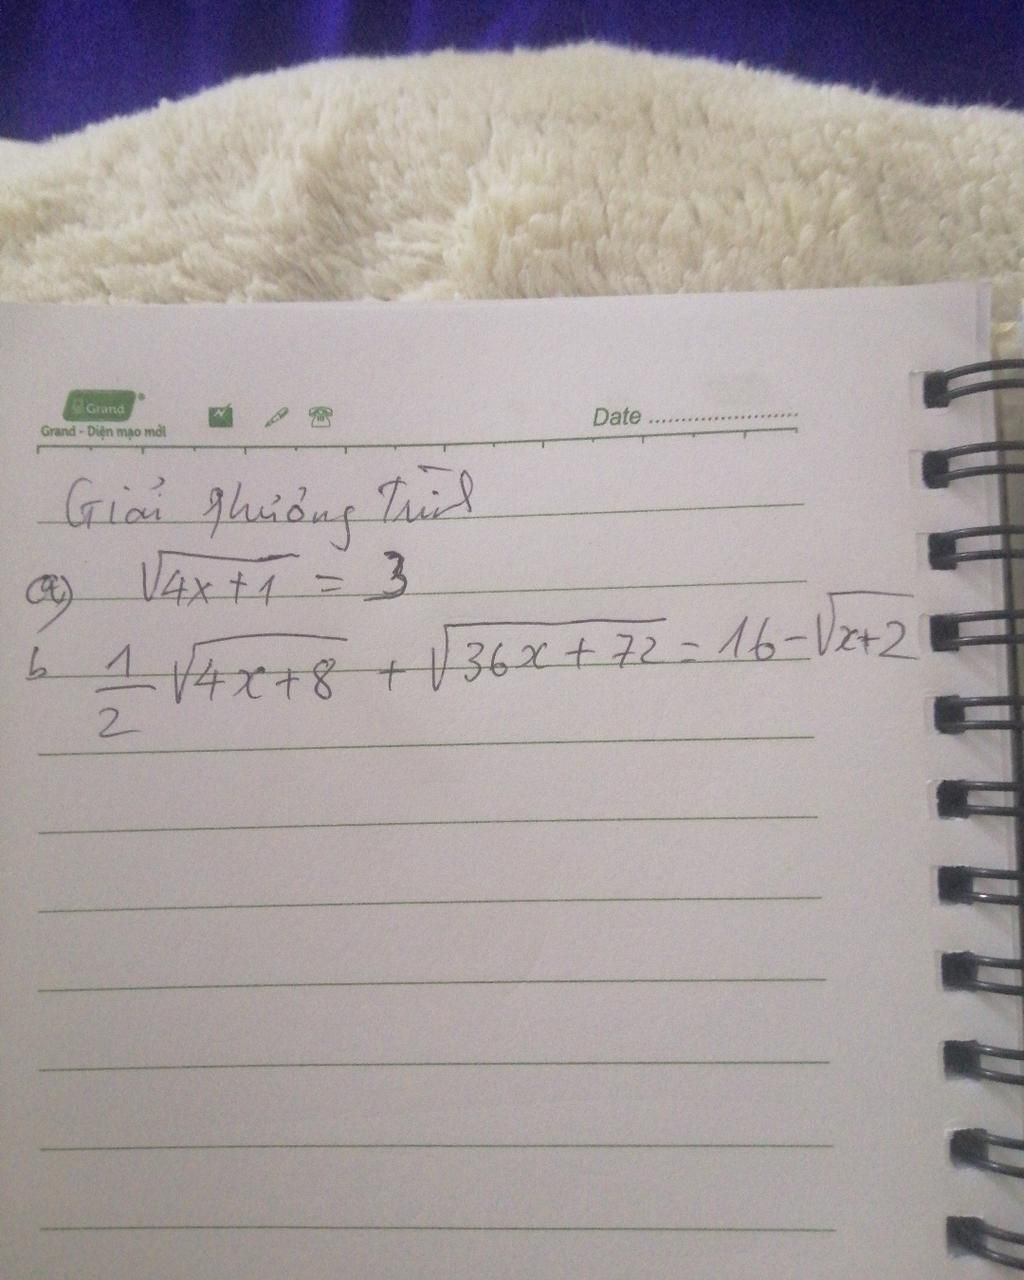 Grand
Grand - Diện mạo mới
Date
Giải phương Trình
a) √4x+1 = 3
b 1/2 √4x+8 + √36x+72 = 16-√x+2